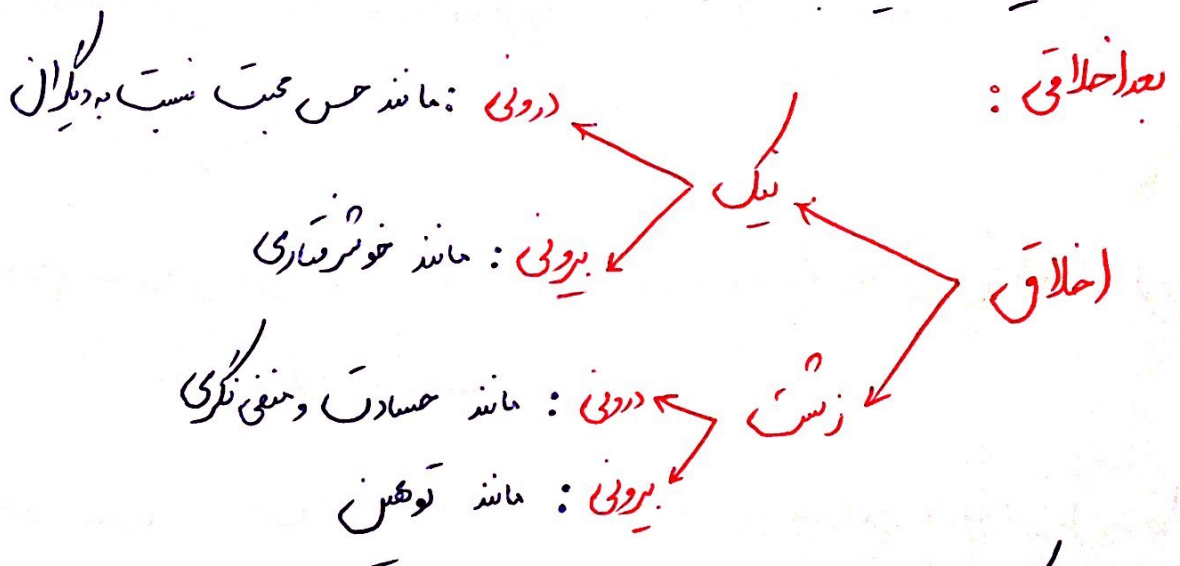 بعد اخلاقی :
درونی : مانند حس محبت نسبت به دیگران
نیک
بیرونی : مانند خوشرفتاری
اخلاق
درونی : مانند حسادت و منفی نگری
زشت
بیرونی : مانند توهین